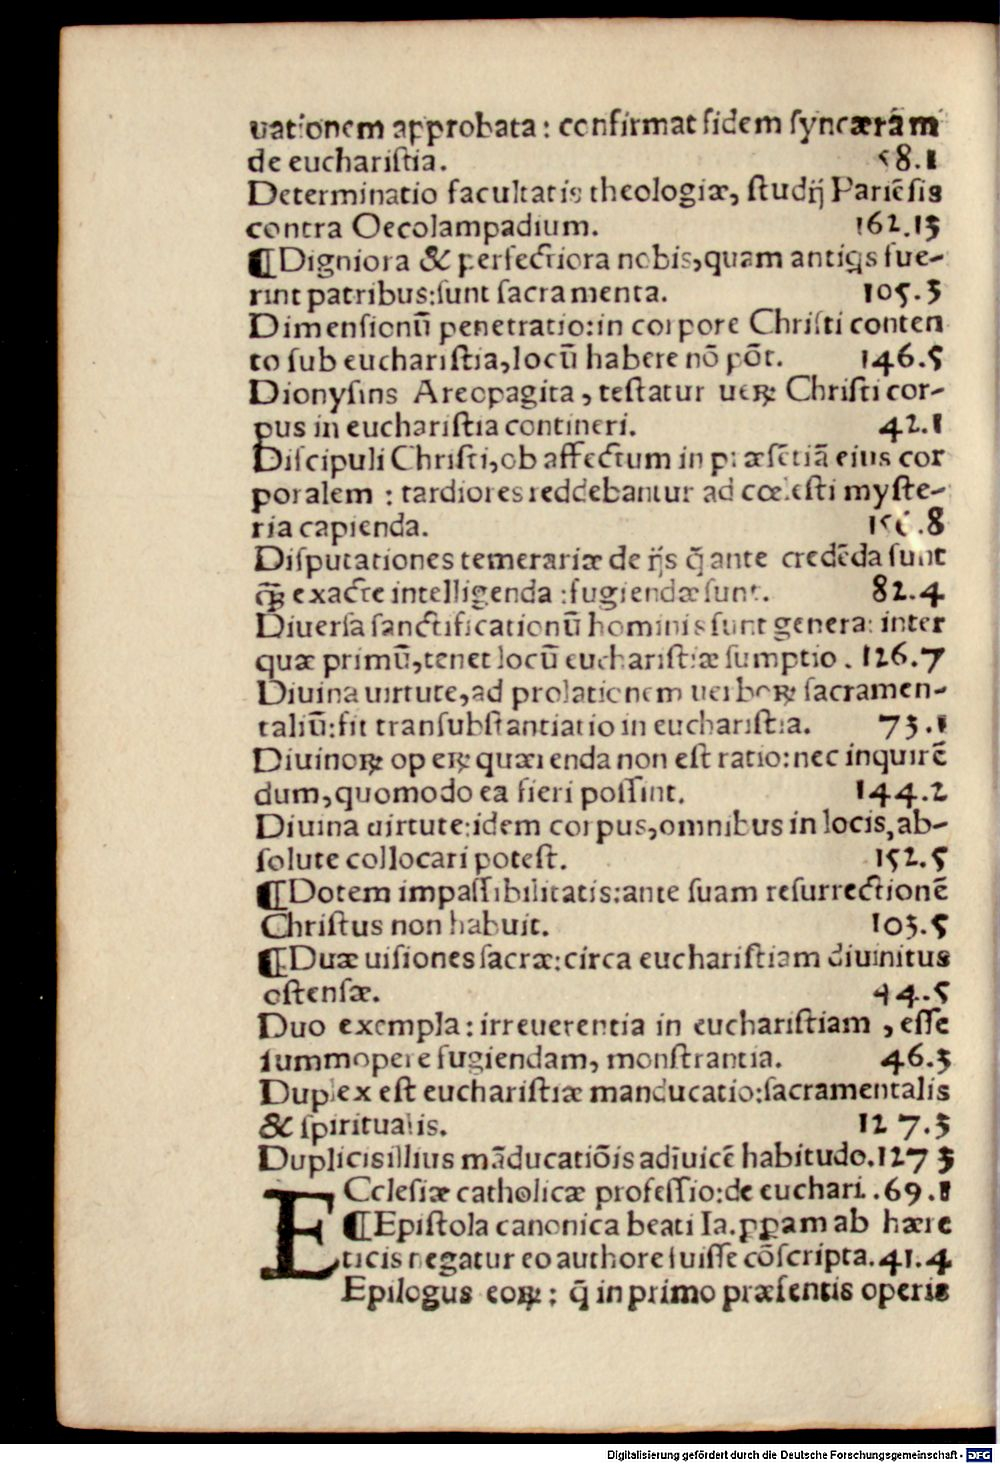 uationem approbata: confirmat fidem syncærã m
de eucharistia. 58.1
Determinatio facultatis theologiæ, studij Pariẽsis
contra Oecolampadium. 162.13
¶Digniora & perfectiora nobis, quam antiqs fue-
rint patribus: sunt sacramenta. 105.3
Dimensionũ penetratio: in corpore Christi conten
to sub eucharistia, locũ habere nõ põt. 146.5
Dionysius Areopagita, testatur ueꝝ Christi cor-
pus in eucharistia contineri. 42.1
Discipuli Christi, ob affectum in præsẽtiã eius cor
poralem : tardiores reddebantur ad cœlesti myste-
ria capienda. 156.8
Disputationes temerariæ de ijs q̃ ante credẽda sunt
exacte intelligenda : fugiendæ sunt. 82.4
Diuersa sanctificationũ hominis sunt genera: inter
quæ primũ, tenet locũ eucharistiæ sumptio. 126.7
Diuina uirtute, ad prolationem uerboꝝ sacramen-
taliũ: fit transubstantiatio in eucharistia. 73.1
Diuinoꝝ opeꝝ quærenda non est ratio: nec inquirẽ
dum, quomodo ea fieri possint. 144.2
Diuina uirtute: idem corpus, omnibus in locis, ab-
solute collocari potest. 152.5
¶Dotem impassibilitatis: ante suam resurrectionẽ
Christus non habuit. 103.5
¶Duæ uisiones sacræ: circa eucharistiam diuinitus
ostensæ. 44.5
Duo exempla: irreuerentia in eucharistiam, esse
summopere fugiendam, monstrantia. 46.3
Duplex est eucharistiæ manducatio: sacramentalis
& spiritualis. 127.3
Duplicis illius mãducatiõis adĩuicẽ habitudo. 127 3
Ecclesiæ catholicæ professio: de euchari. .69.1
¶Epistola canonica beati Ia. ꝑꝑam ab hære
ticis negatur eo authore fuisse cõscripta. 41.4
Epilogus eoꝝ: q̃ in primo præsentis operis
Digitalisierung gefördert durch die Deutsche Forschungsgemeinschaft - DFG